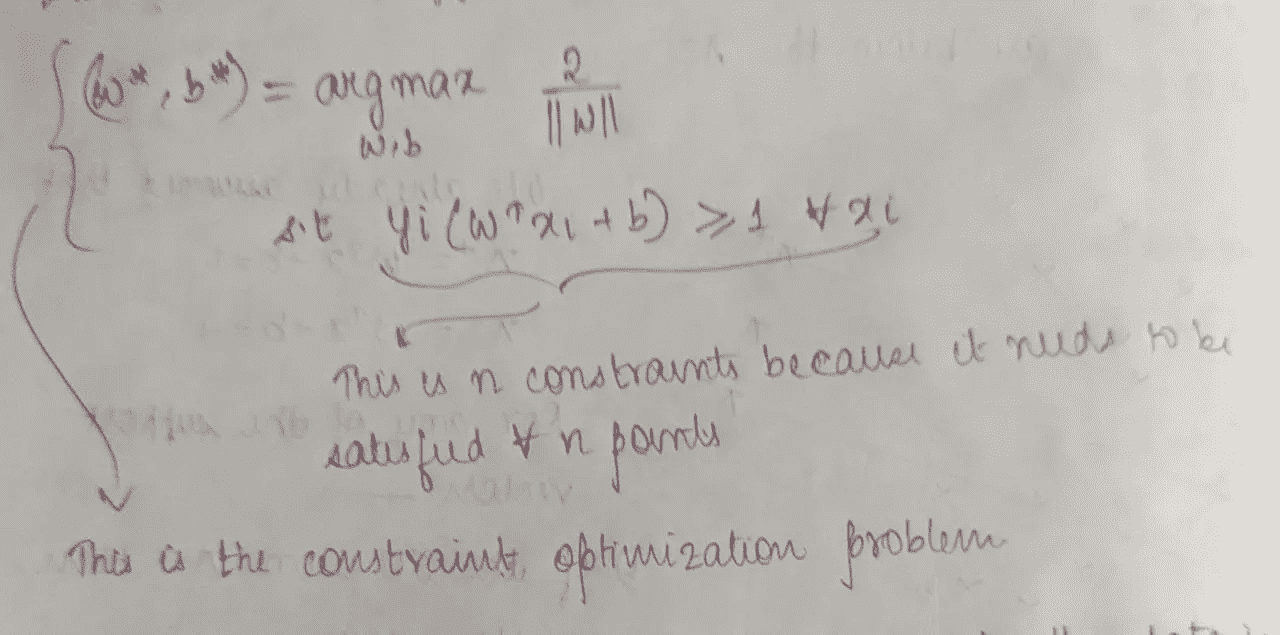 (w*, b*) = argmax 2/||w||
w,b
s.t yi (wᵀxi + b) ≥ 1 ∀ xi
This is n constraints because it needs to be
satisfied ∀ n points
This is the constraint optimization problem